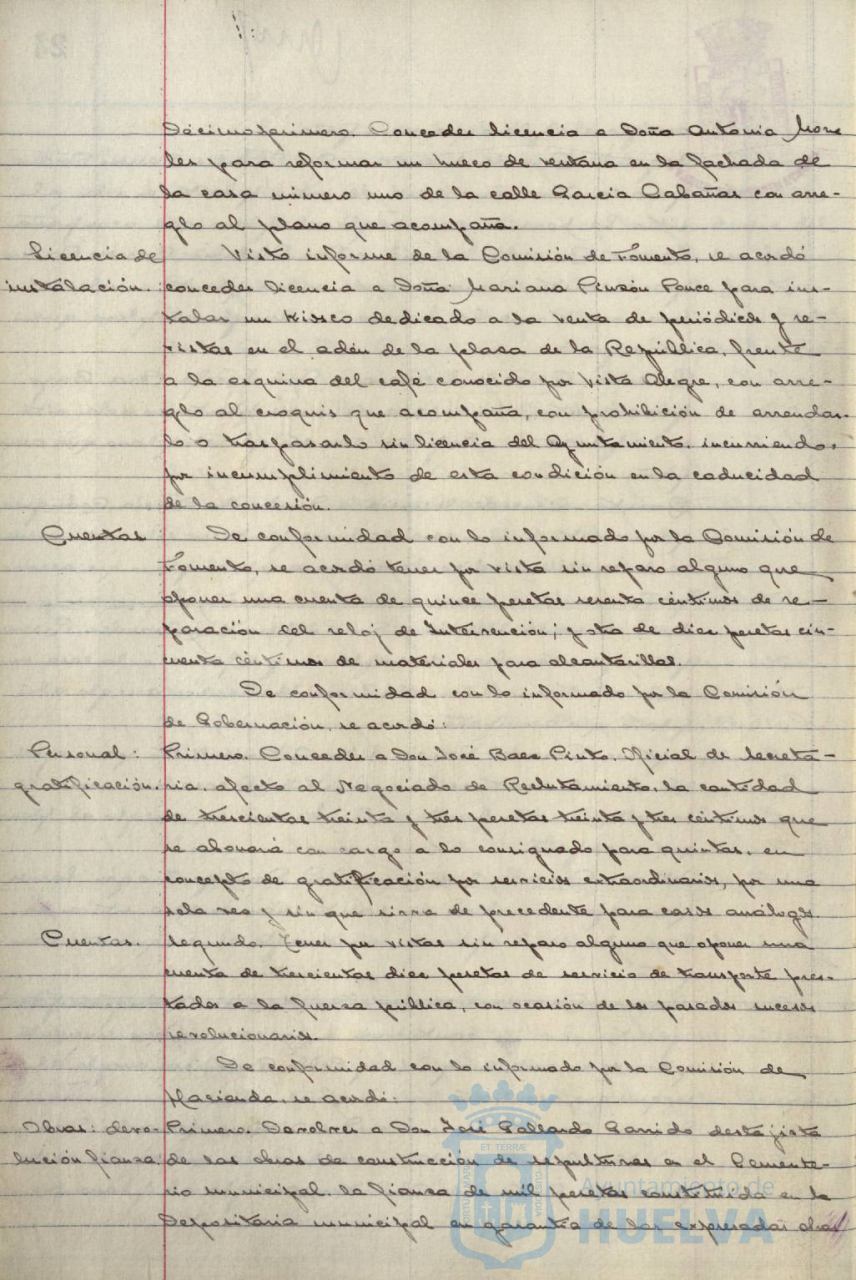 Décimoprimero. Conceder licencia a Doña Antonia Mora
les para reformar un hueco de ventana en la fachada de
la casa número uno de la calle García Cabañas con arre-
glo al plano que acompaña.
Licencia de
instalación.
Visto informe de la Comisión de Fomento, se acordó
conceder licencia a Doña Mariana Pinzón Ponce para ins-
talar un kiosco dedicado a la venta de periódicos y re-
vistas en el adén de la plaza de la República, frente
a la esquina del café conocido por Vista Alegre, con arre-
glo al croquis que acompaña, con prohibición de arrendar-
lo o traspasarlo sin licencia del Ayuntamiento, incurriendo,
por incumplimiento de esta condición en la caducidad
de la concesión.
Cuentas
De conformidad con lo informado por la Comisión de
Fomento, se acordó tener por vista sin reparo alguno que
oponer una cuenta de quince pesetas sesenta céntimos de re-
paración del reloj de Intervención; y otra de diez pesetas cin-
cuenta céntimos de materiales para alcantarillas.
De conformidad con lo informado por la Comisión
de Gobernación, se acordó:
Personal:
gratificación.
Primero. Conceder a Don José Baez Pinto, Oficial de Secreta-
ría, afecto al Negociado de Reclutamiento, la cantidad
de trescientas treinta y tres pesetas treinta y tres céntimos que
se abonará con cargo a lo consignado para quintas, en
concepto de gratificación por servicios extraordinarios, por una
sola vez y sin que sirva de precedente para casos análogos.
Cuentas.
Segundo. Tener por vistas sin reparo alguno que oponer una
cuenta de trescientas diez pesetas de servicio de transporte pres-
tados a la fuerza pública, con ocasión de los pasados sucesos
revolucionarios.
De conformidad con lo informado por la Comisión de
Hacienda, se acordó:
Obras: devo-
lución fianza.
Primero. Devolver a Don José Gallardo Garrido destajista
de las obras de construcción de sepulturas en el Cemente-
rio municipal, la fianza de mil pesetas constituida en la
Depositaría municipal en garantía de las expresadas obras
Ayuntamiento de
HUELVA